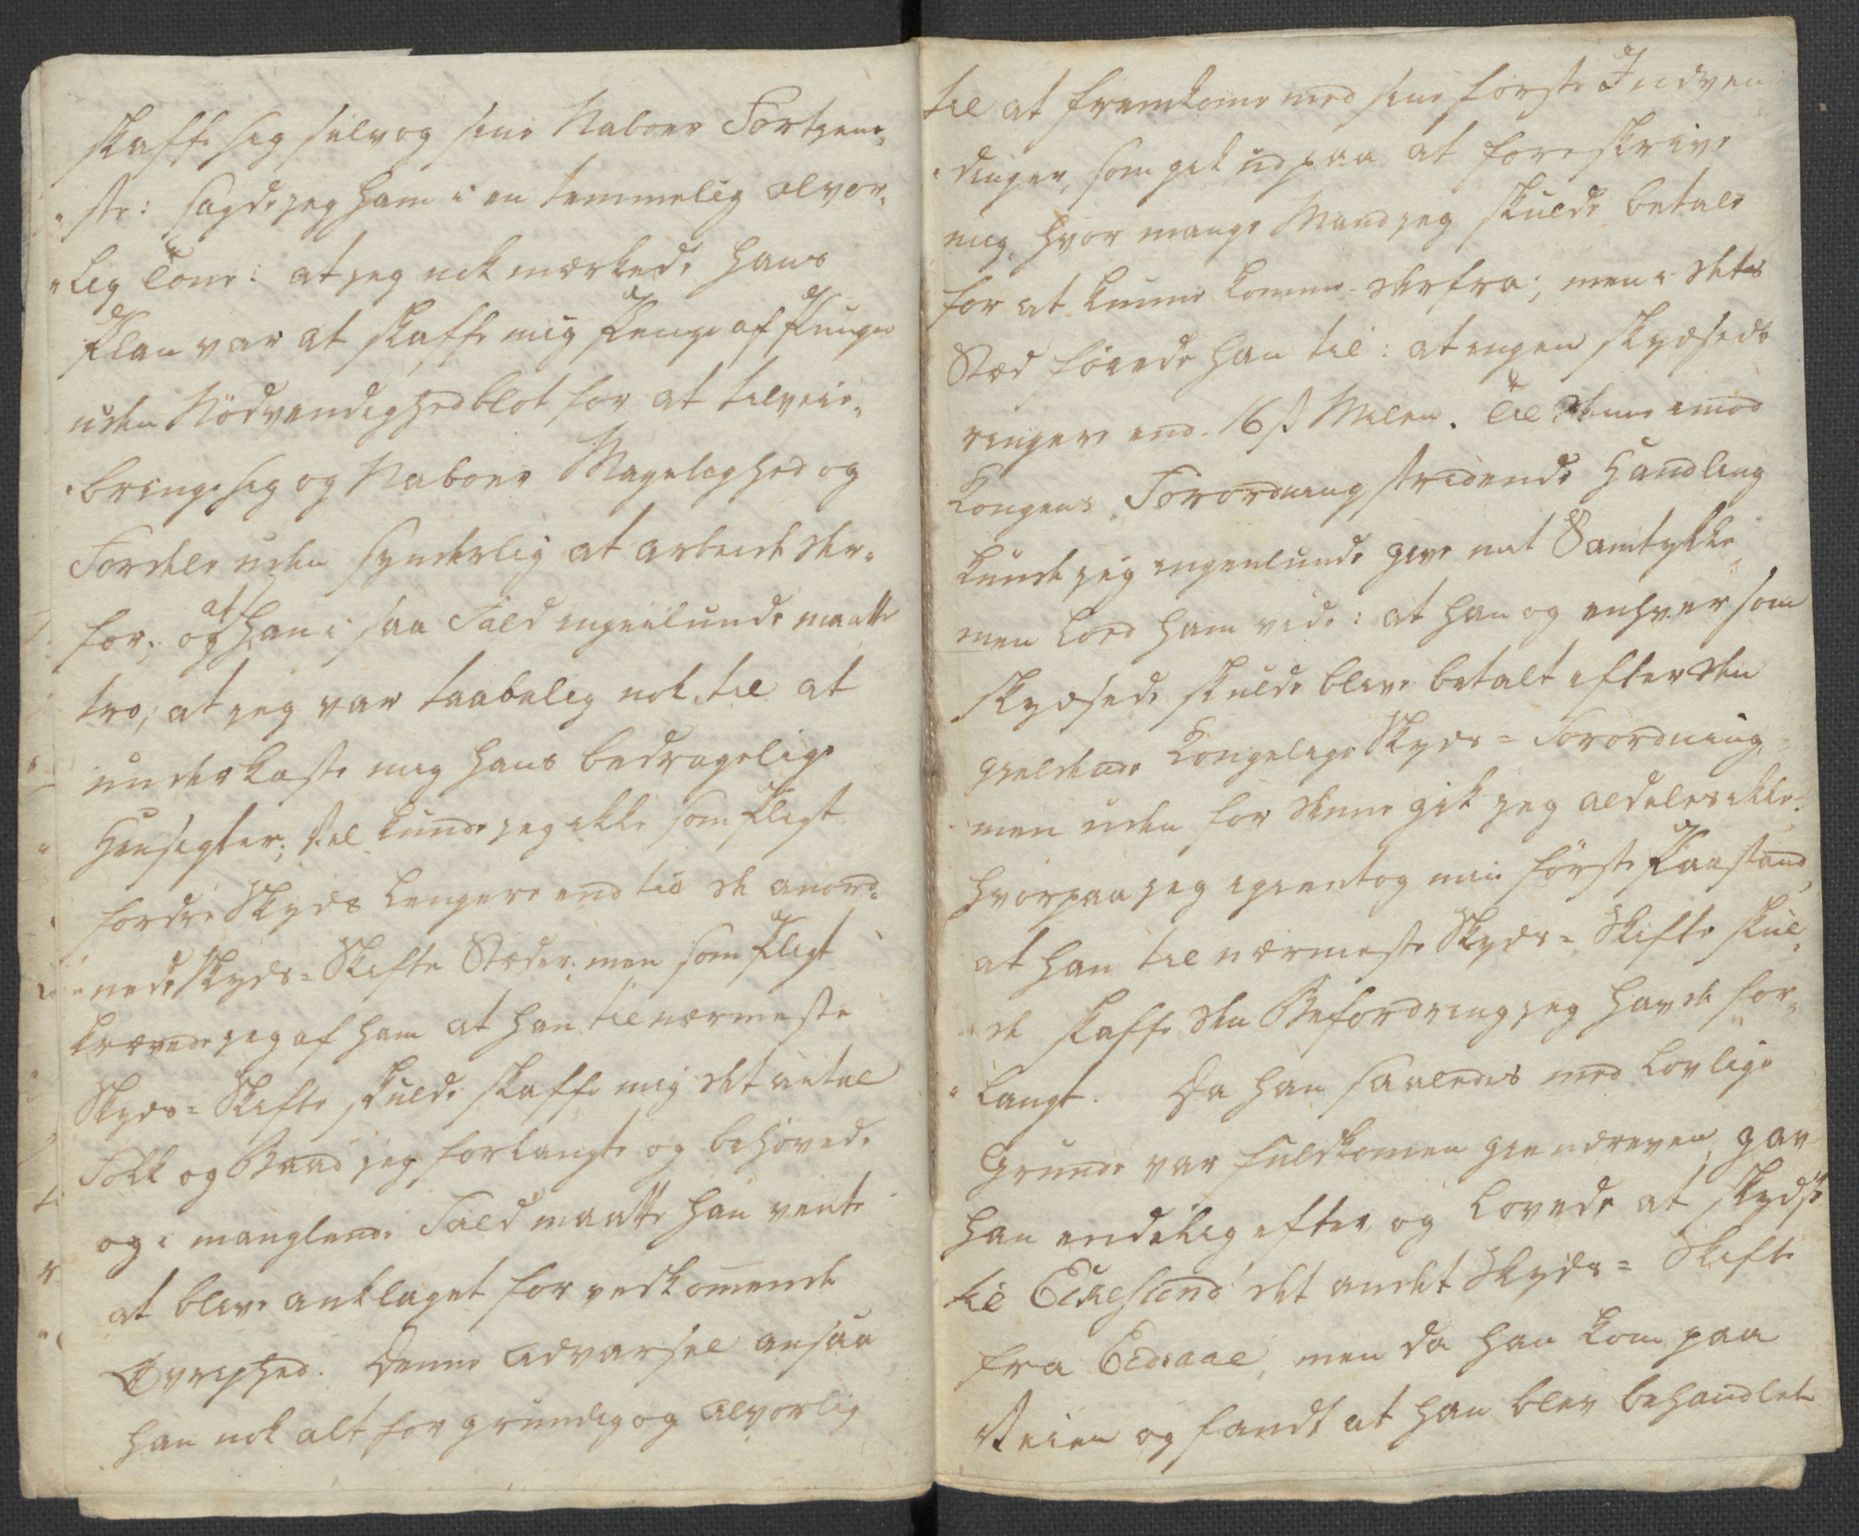 skaffe sig selv og sine Naboer Fortiene¬
„ste: sagde jeg ham i en temmelig alvor¬
„lig Tone: at jeg nok mærkede hans
Plan var at skaffe mig Penge af Pungen
uden Nödvendighed blot for at tilveie¬
„bringe sig og Naboer Magelighed og
Fordele uden synderlig at arbeide der¬
for; og at han i saa Fald ingenlunde maatte
tro, at jeg var taabelig nok til at
underkaste mig hans bedragelige
Hensigter; vel kunde jeg ikke som Pligt
fordre Skyds lengere end til de anord¬
„nede Skyds=Skifte Stæder, men som Pligt
krævede jeg af ham at han til nærmeste
Skyds=Skifte skulde skaffe mig det antal
Folk og Baad jeg forlangte og behövede
og i manglende Fald maatte han vente
at blive anklaget for vedkom̄ende
Øvrighed. Denne Advarsel ansaa
han nok alt for grundig og alvorlig
til at fremkome med sine förste Indven
„dinger, som gik ud paa at foreskrive
mig, hvor mange Mand jeg skulde betale
for at kunne komme derfra; men i dets
Stæd föiede han til: at ingen skydsede
ringere end 16 ß Milen. Til denne imod
Kongens Forordning stridende Handling
kunde jeg ingenlunde give mit Samtykke
men loed ham vide: at han og enhver som
skydsede skulde blive betalt efter den
gieldende Kongelige Skyds=Forordning,
men uden for denne gik jeg aldeles ikke.
hvorpaa jeg igientog min förste Paastand,
at han til nærmeste Skyds=Skifte skul¬
„de skaffe den Befordring jeg havde for¬
„langt. Da han saaledes med lovlige
Grunde var fuldkomen giendreven, gav
han endelig efter og lovede at skydse
til Eikesund det andet Skyds=Skifte
fra Eidsaae, men da han kom paa
Veien og fandt at han blev behandlet